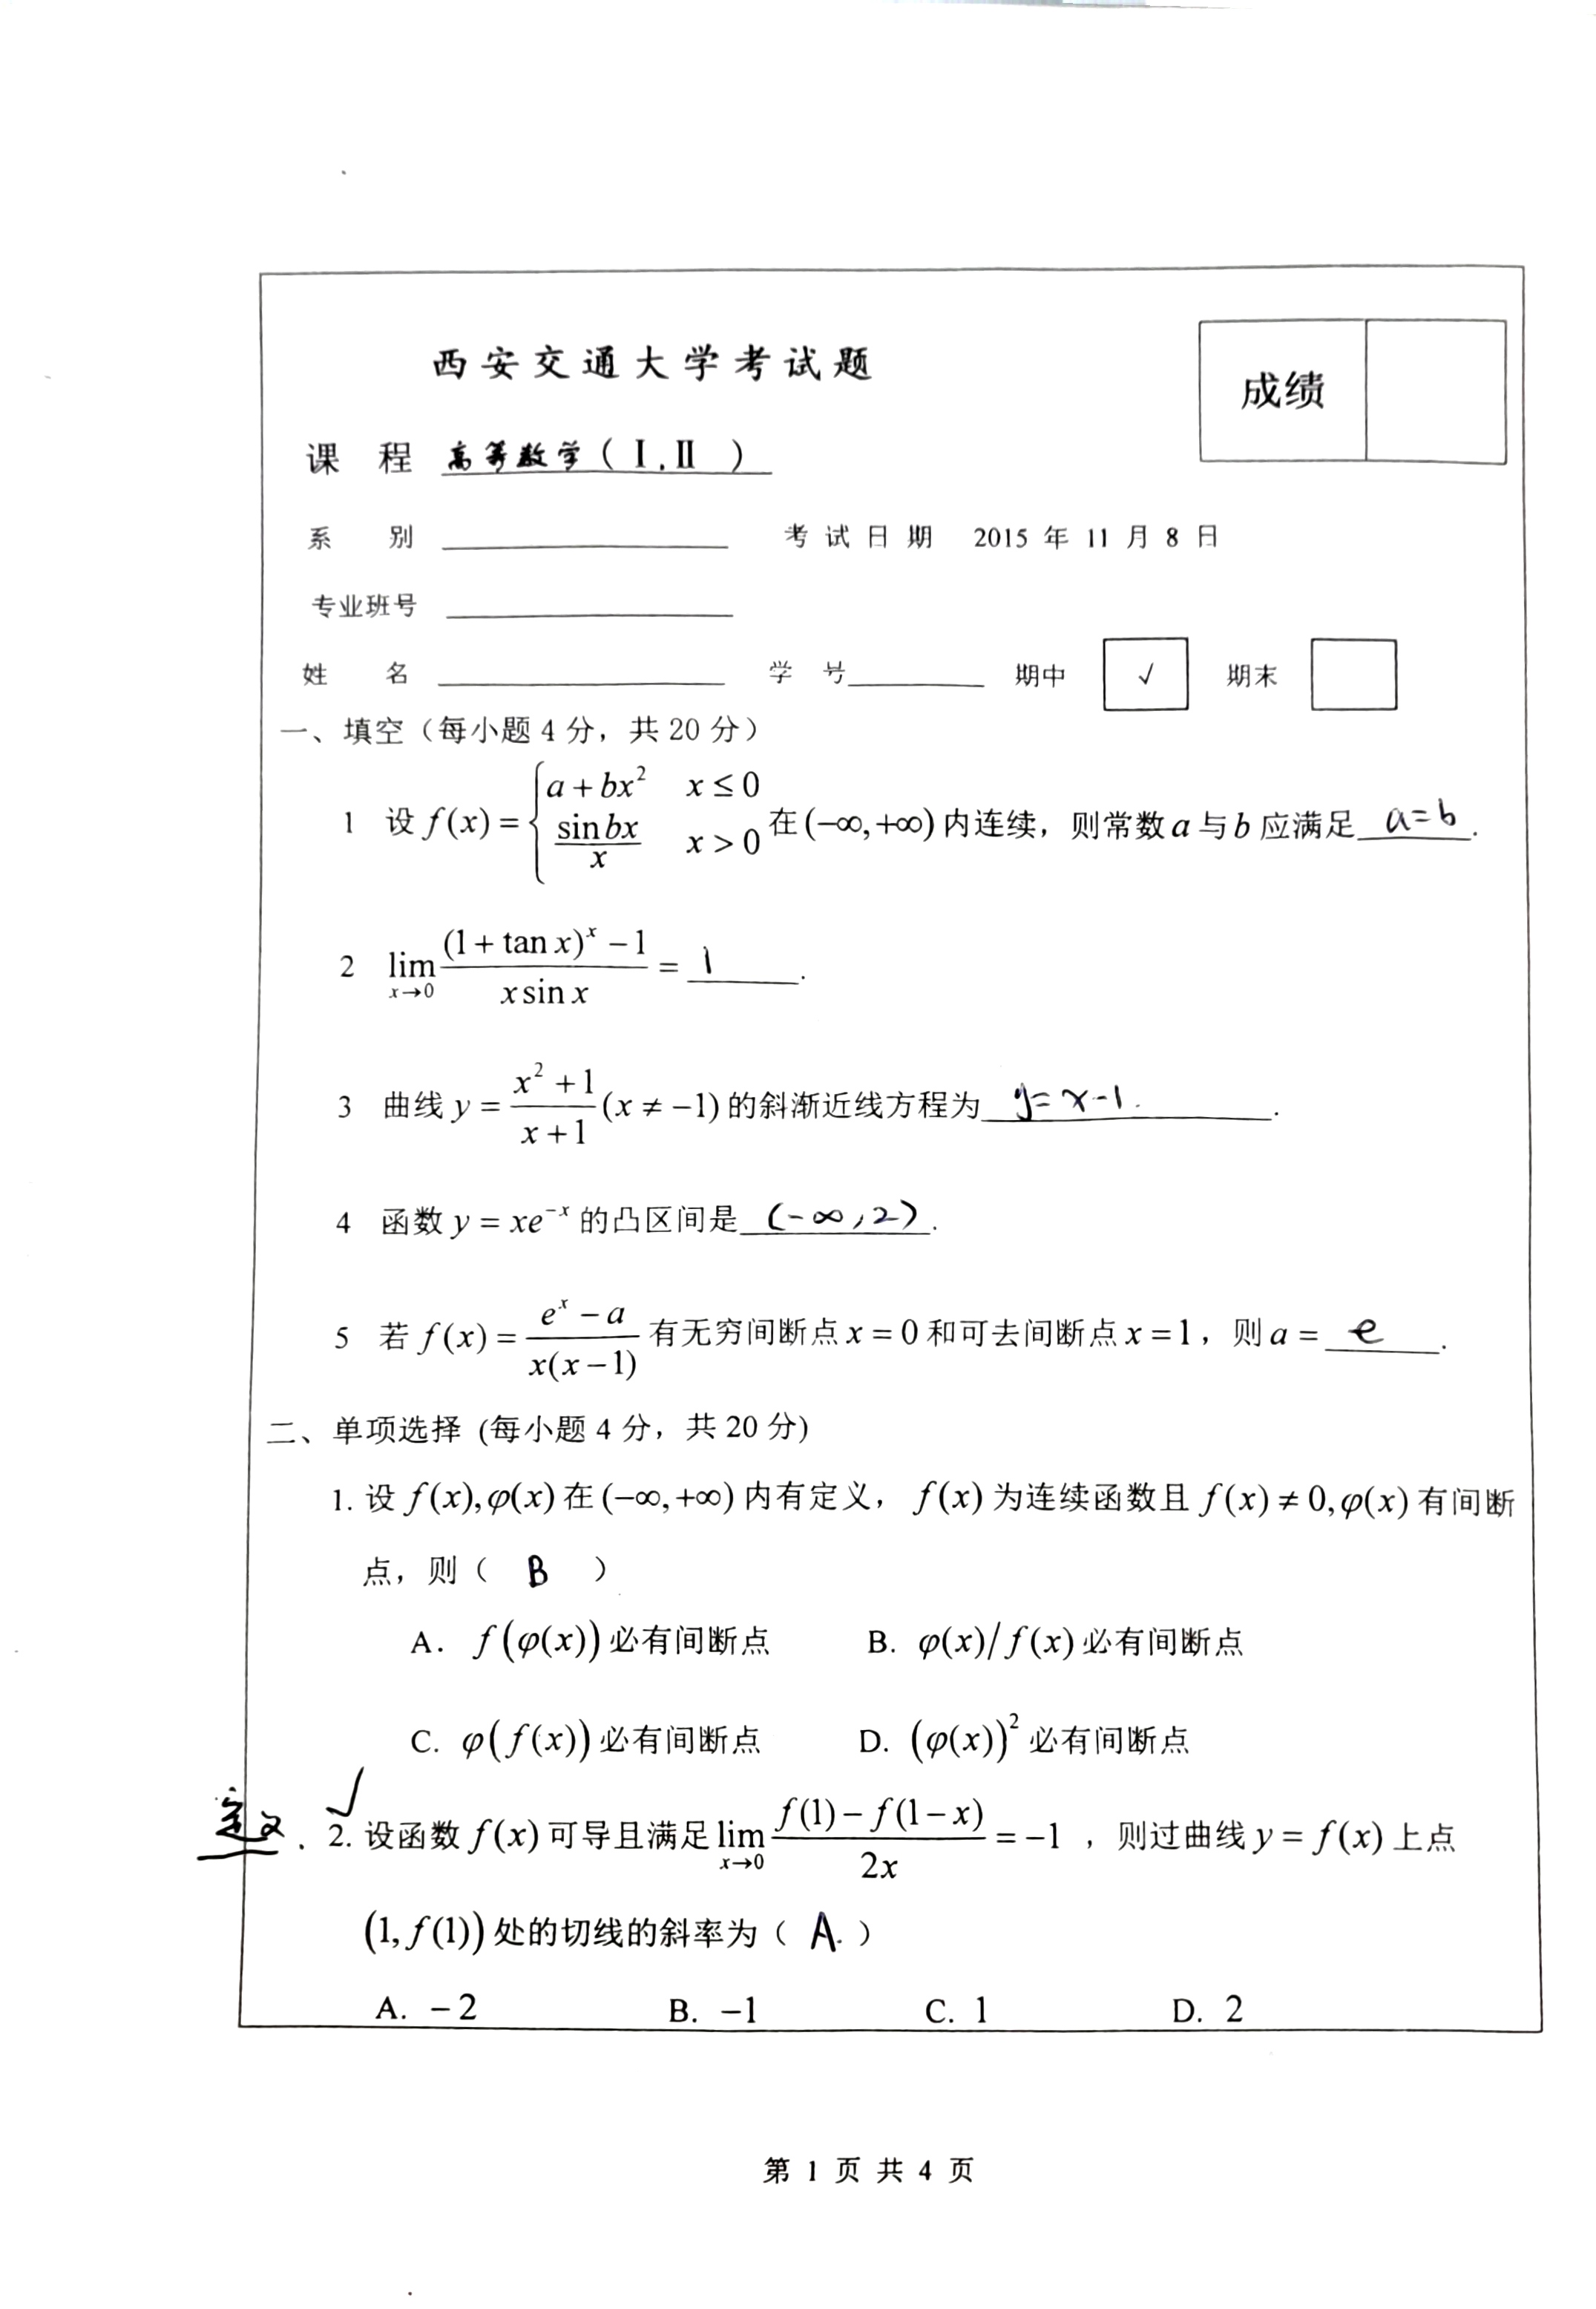 西安交通大学考试题
成绩
课 程 高等数学(Ⅰ,Ⅱ)
系 别 考试日期 2015 年 11 月 8 日
专业班号
姓 名 学 号 期中 √ 期末
一、填空（每小题 4 分，共 20 分）
1 设 f(x) = { a + bx² x ≤ 0 ; sin bx / x x > 0 在 (−∞, +∞) 内连续，则常数 a 与 b 应满足 a=b .
2 lim x→0 ((1 + tan x)^x − 1) / (x sin x) = 1 .
3 曲线 y = (x² + 1)/(x + 1) (x ≠ −1) 的斜渐近线方程为 y=x-1. .
4 函数 y = xe^(−x) 的凸区间是 (-∞,2) .
5 若 f(x) = (e^x − a)/(x(x − 1)) 有无穷间断点 x = 0 和可去间断点 x = 1，则 a = e .
二、单项选择 (每小题 4 分，共 20 分)
1. 设 f(x), φ(x) 在 (−∞, +∞) 内有定义， f(x) 为连续函数且 f(x) ≠ 0, φ(x) 有间断
点，则（ B ）
A. f(φ(x)) 必有间断点 B. φ(x)/f(x) 必有间断点
C. φ(f(x)) 必有间断点 D. (φ(x))² 必有间断点
定义. √ 2. 设函数 f(x) 可导且满足 lim x→0 (f(1) − f(1 − x))/(2x) = −1 ，则过曲线 y = f(x) 上点
(1, f(1)) 处的切线的斜率为（ A. ）
A. −2 B. −1 C. 1 D. 2
第 1 页 共 4 页